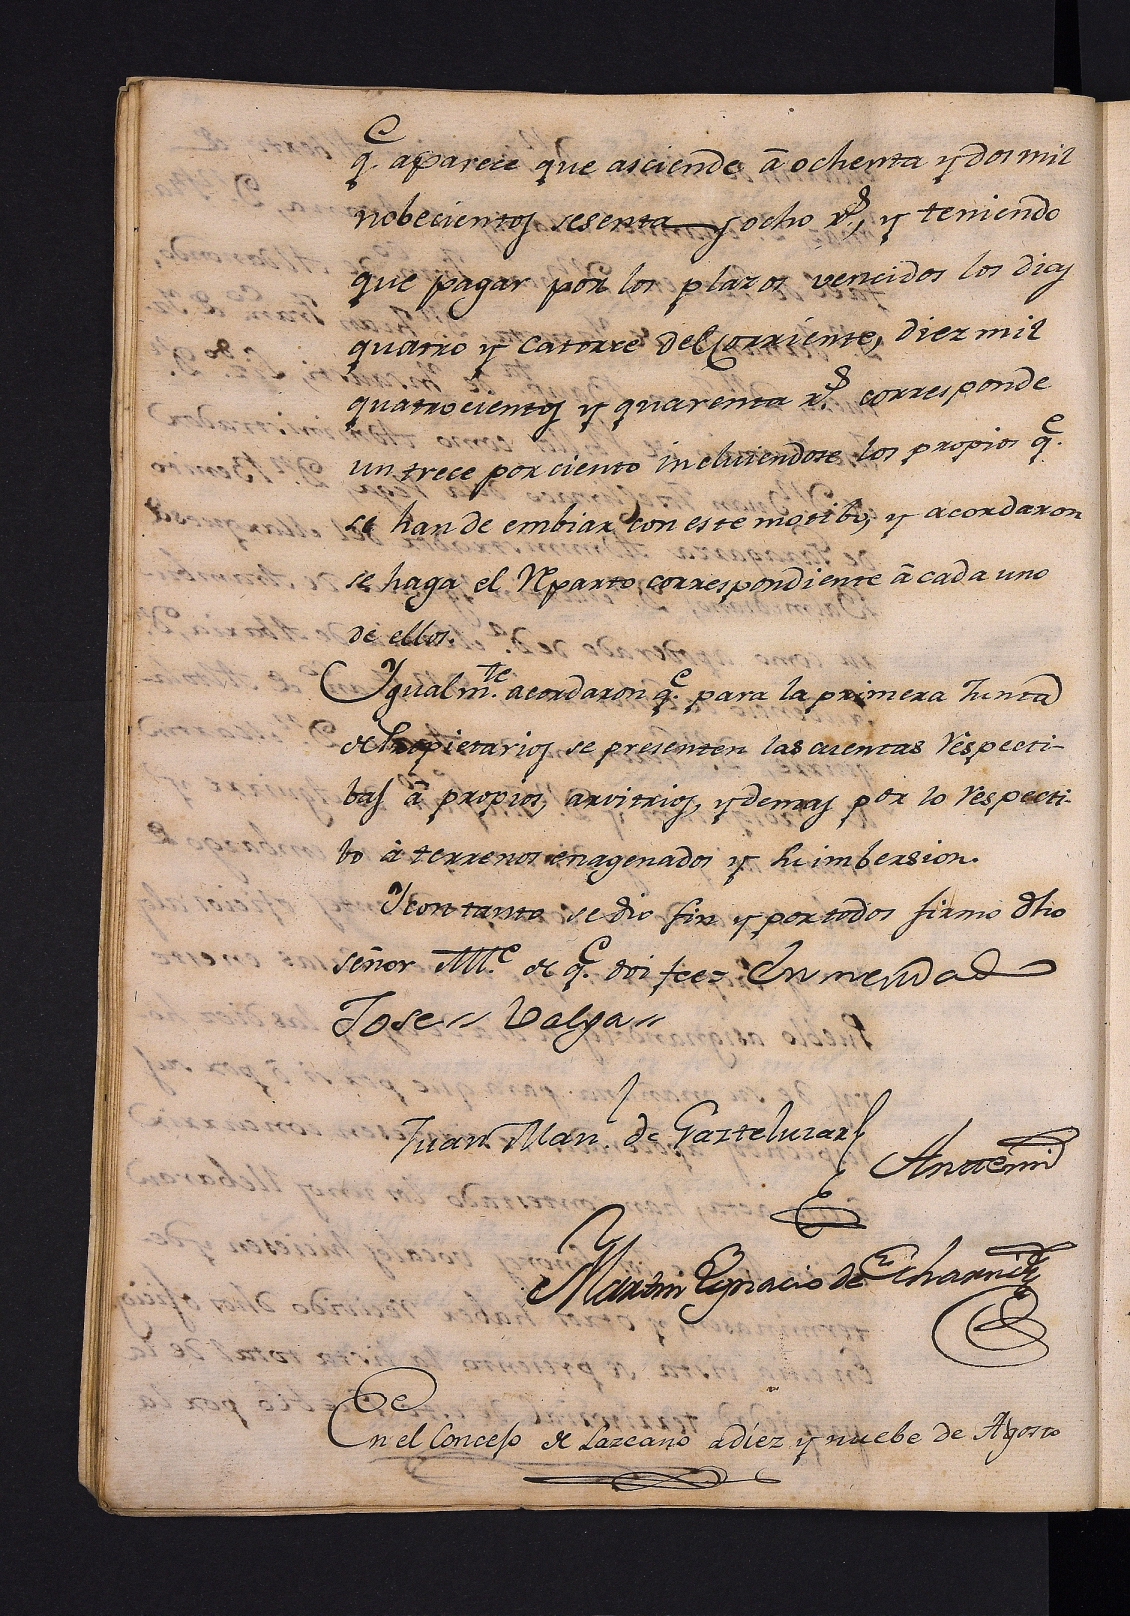 q.e aparece que asciende â ochenta y dos mil
nobecientos sesenta y ocho r.s, y teniendo
que pagar por los plazos vencidos los dias
quatro y catorce del Corriente, diez mil
quatrocientos y quarenta r.s corresponde
un trece por ciento incluiendose los propios q.e
se han de embiar con este motibo, y acordaron
se haga el Rparto correspondiente â cada uno
de ellos.
Ygualm.te acordaron q.e para la primera Junta
de Propietarios se presenten las cuentas respecti-
bas â propios, arvitrios, y demas por lo respecti-
bo à terrenos enagenados y su imbersion.
Y con tanto se dio fin y por todos firmo dho
señor All.e de q.e doi fee= Enmendad
Jose〃 Valga〃
Juan Man.l de Gaztelu
Antemi
Martin Ygnacio de
En el Concejo de Lazcano a diez y nuebe de Agosto